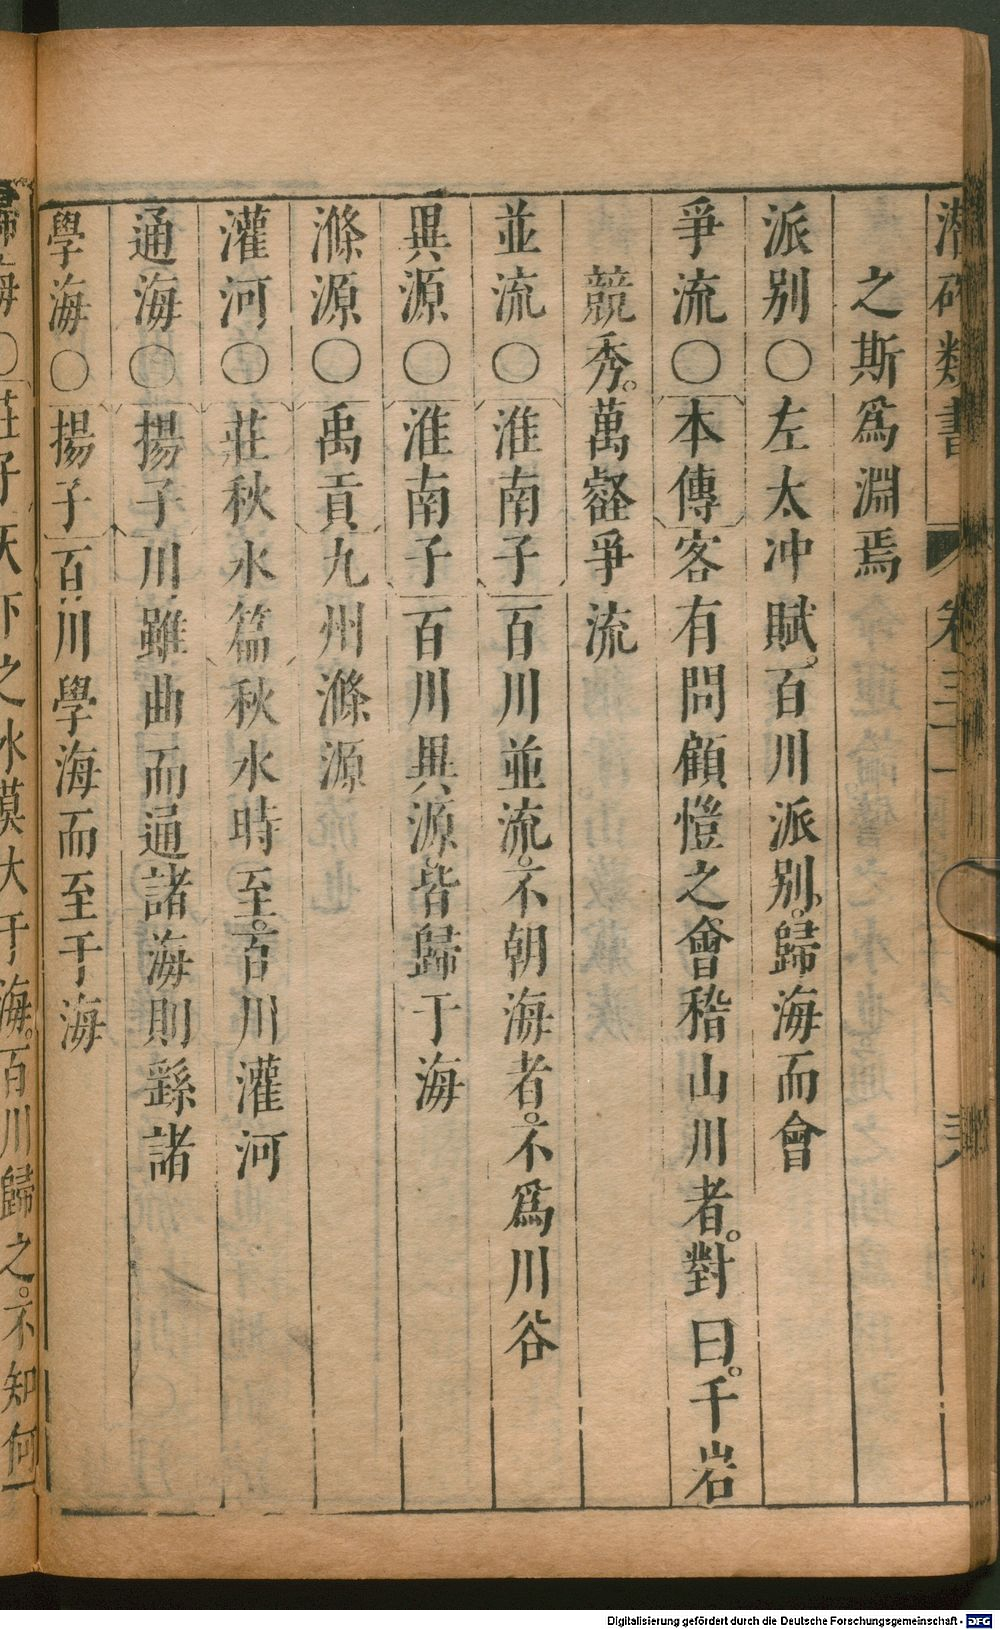 潛確類書 卷三十一
之斯爲淵焉
派別〇左太冲賦。百川派別。歸海而會
爭流〇本傳客有問顧愷之會稽山川者。對曰。千岩
競秀。萬壑爭流
並流〇淮南子百川並流。不朝海者。不爲川谷
異源〇淮南子百川異源皆歸于海
滌源〇禹貢九州滌源
灌河〇莊秋水篇秋水時至。百川灌河
通海〇揚子川雖曲而通諸海則繇諸
學海〇揚子百川學海而至于海
歸海〇莊子天下之水莫大于海。百川歸之。不知何
Digitalisierung gefördert durch die Deutsche Forschungsgemeinschaft - DFG